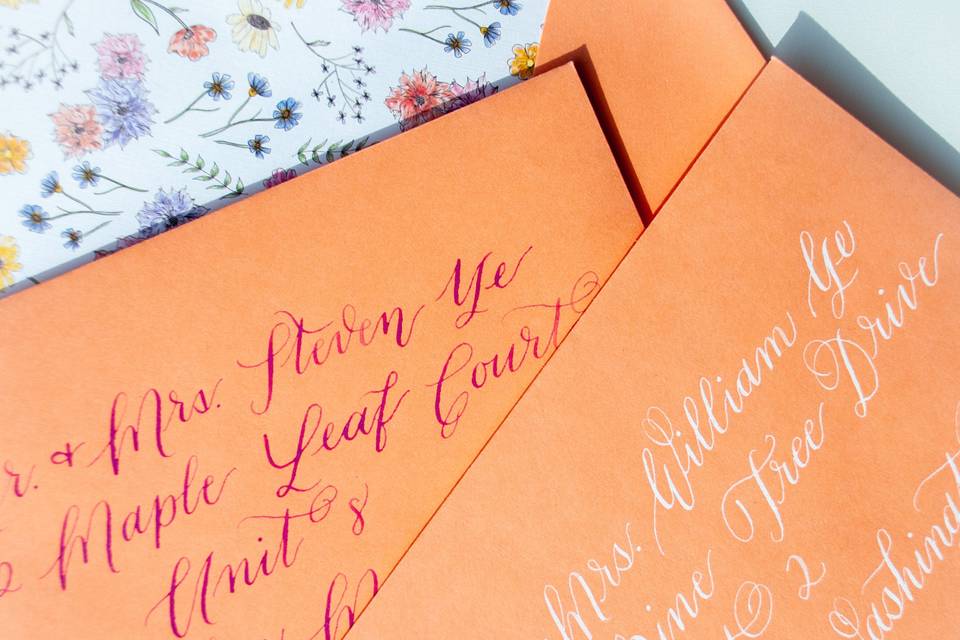 r. & Mrs. Steven Ye
2 Maple Leaf Court
Unit 8
M
Mrs. William Ye
ine Tree Drive
2
ashingt